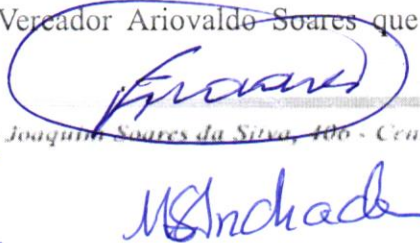 Vereador Ariovaldo Soares que
Joaquim Soares da Silva, 406 - Cen
MSAndrade